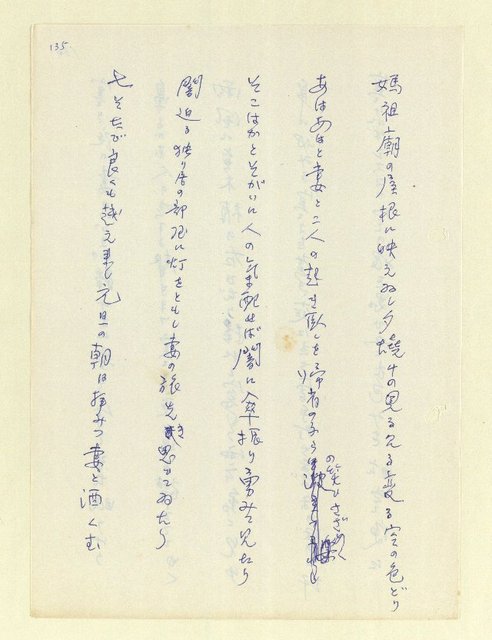 135
媽祖廟の屋根に映えゐし夕燒けの見る見る変る空の色どり
あはあはと妻と二人の起き臥しを帰省の子らの笑ひさざめく
そこはかとそがひに人の気配せば闇に傘振り勇みて見たり
闇迫る独り居の部屋に灯をともし妻の旅先き思ひてゐたり
七そたび良くも越え来し元旦の朝は拝みつ妻と酒くむ